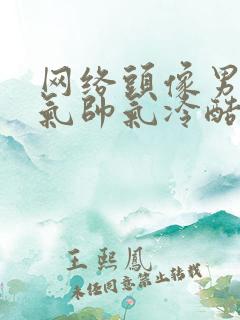 网络頭像男
氣帥氣冷酷
王熙鳳
未经同意禁止转载